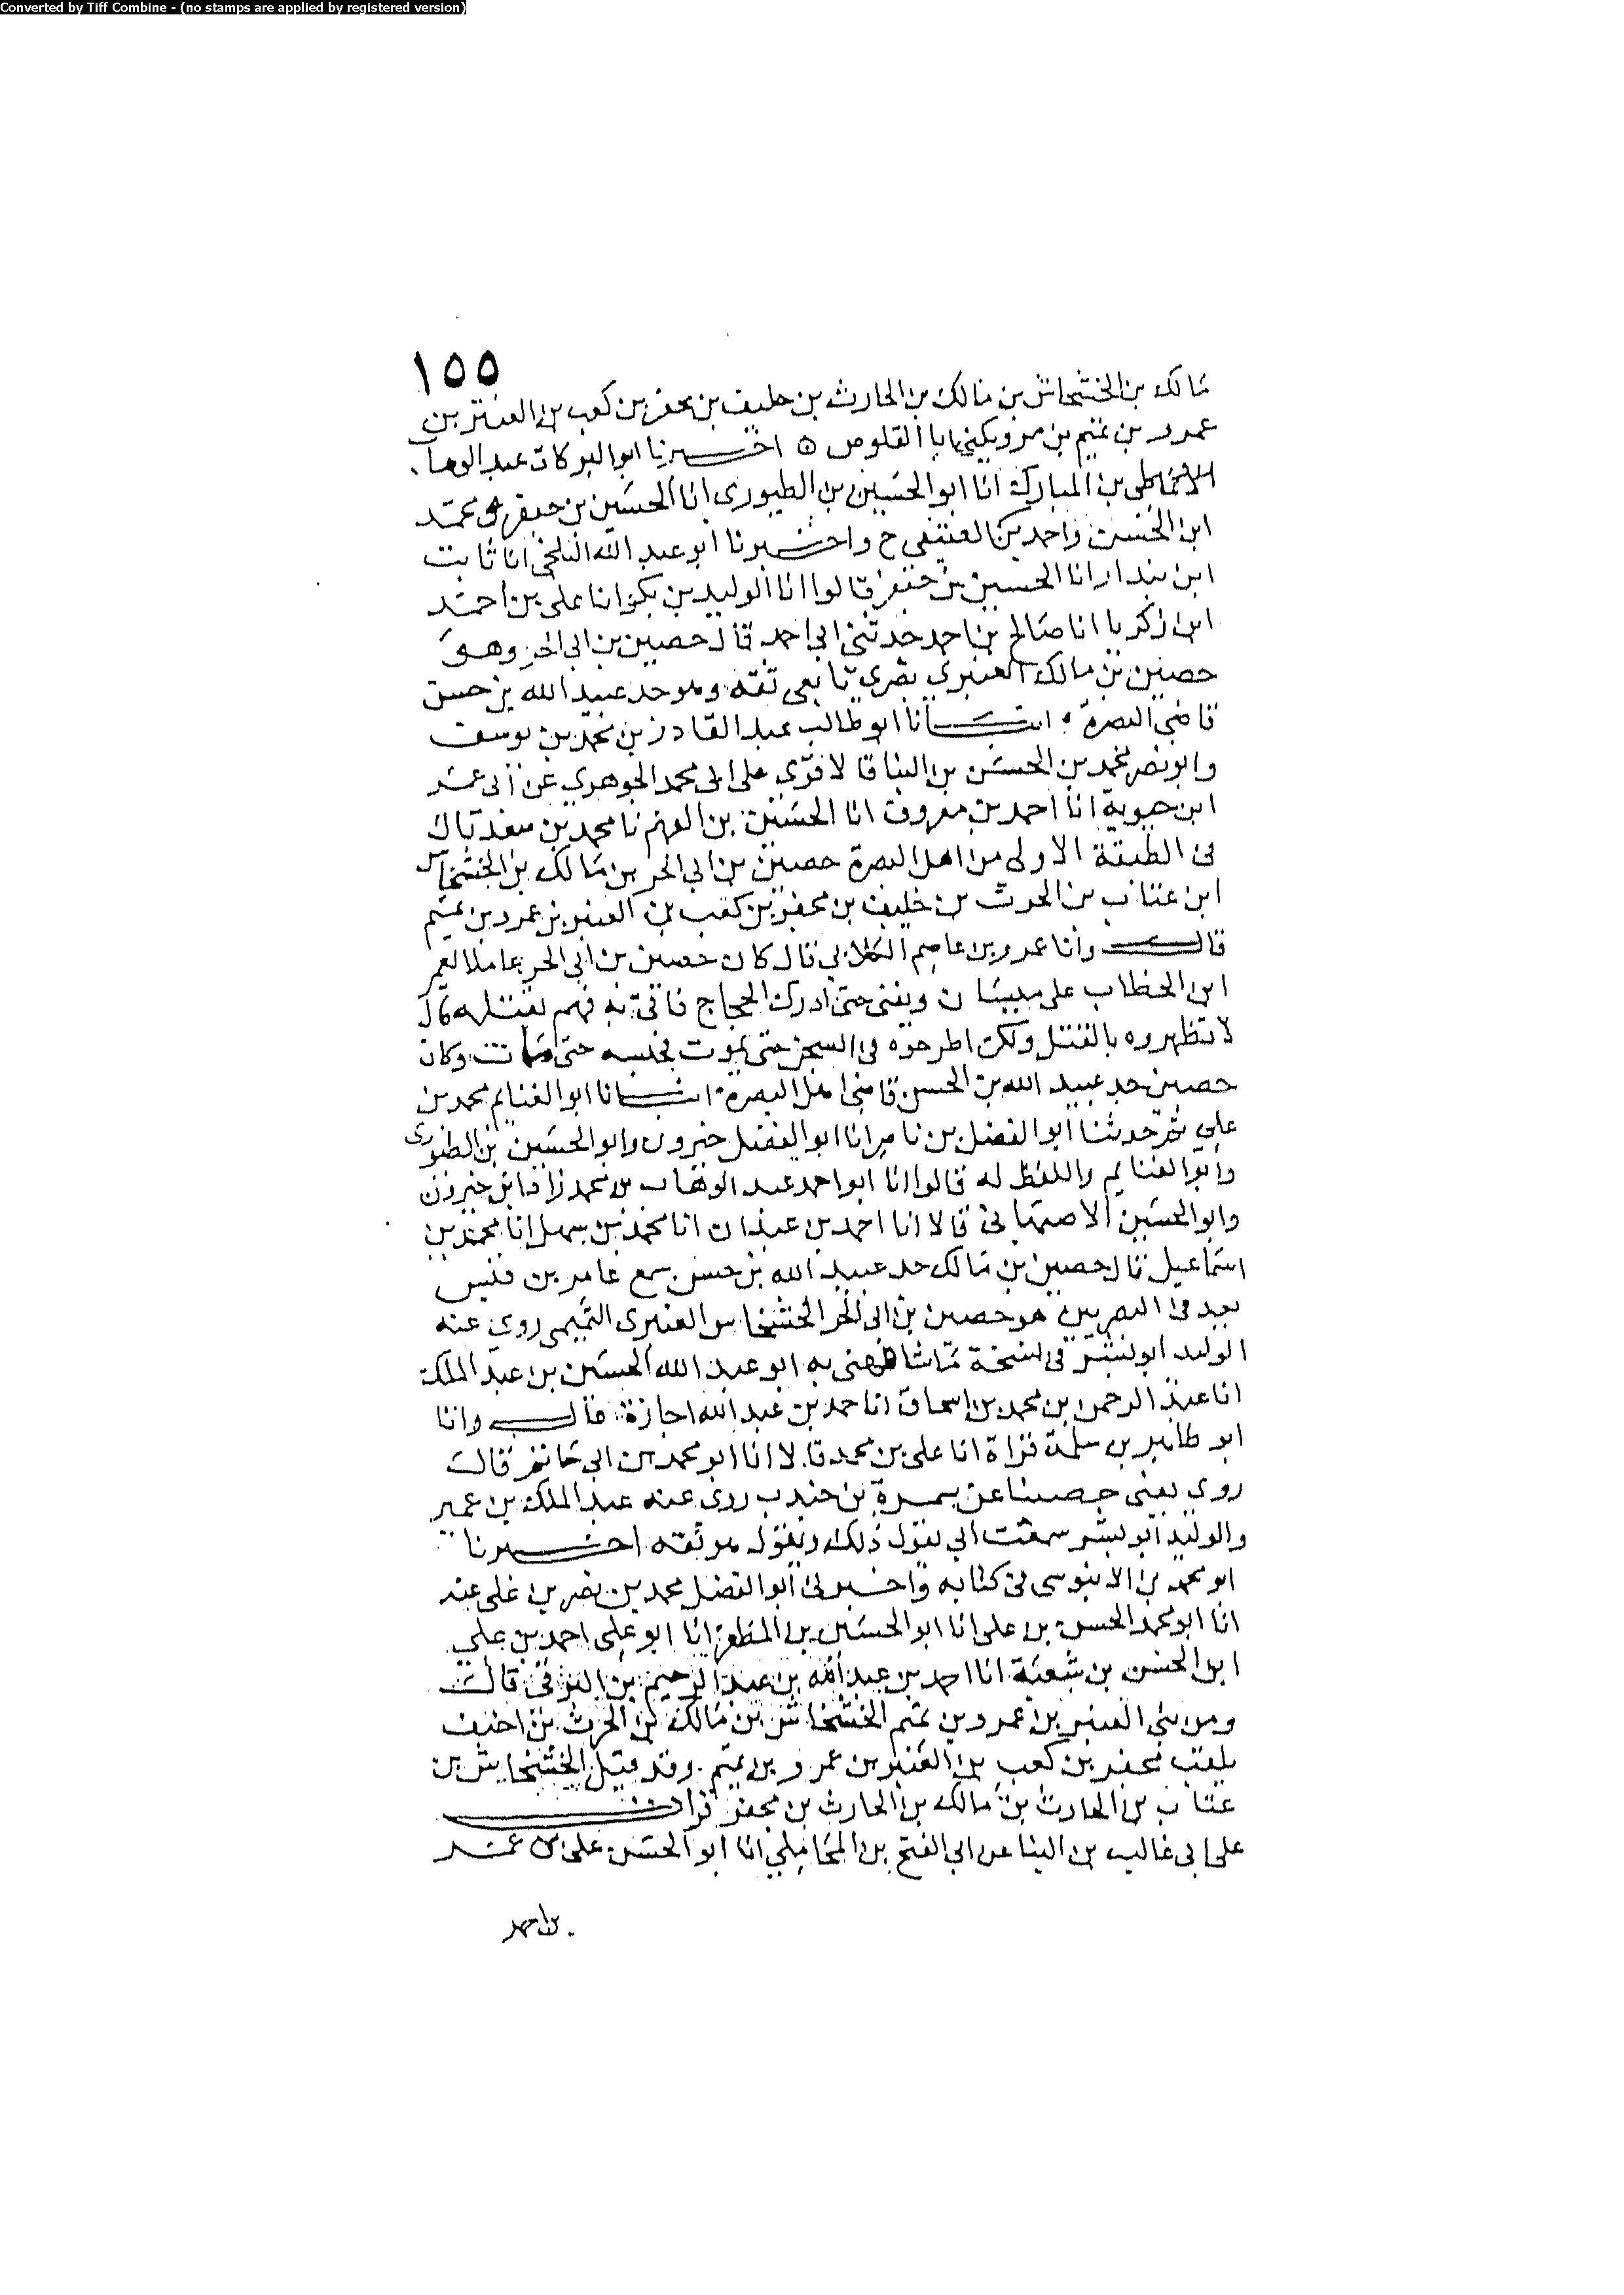 Converted by Tiff Combine - (no stamps are applied by registered version)
١٥٥
مالك بن الخشخاش بن مالك بن الحارث بن خليف بن مجفر بن كعب بن العنبر بن
عمرو بن تميم بن مر ويكنى ابا القلوص ٥ اخبرنا ابو البركات عبد الوهاب
الانماطي بن المبارك انا ابو الحسين بن الطيوري انا الحسين بن جعفر ومحمد
ابن الحسن واحمد بن العتيقي ح واخبرنا ابو عبد الله البلخي انا ثابت
ابن بندار انا الحسين بن جعفر قالوا انا الوليد بن بكر انا علي بن احمد
ابن زكريا انا صالح بن احمد حدثني ابي احمد قال حصين بن ابي الحر وهو
حصين بن مالك العنبري بصري تابعي ثقة وهو جد عبيد الله بن حسن
قاضي البصرة انبأنا ابو طالب عبد القادر بن محمد بن يوسف
وابو نصر محمد بن الحسن بن البنا قالا قرئ على ابي محمد الجوهري عن ابي عمر
ابن حيوية انا احمد بن معروف انا الحسين بن الفهم نا محمد بن سعد قال
في الطبقة الاولى من اهل البصرة حصين بن ابي الحر بن مالك بن الخشخاش
ابن عتاب بن الحرث بن خليف بن مجفر بن كعب بن العنبر بن عمرو بن تميم
قال وانا عمرو بن عاصم الكلابي قال كان حصين بن ابي الحر عاملا لعمر
ابن الخطاب على ميسان وبقى حتى ادرك الحجاج فاتي به فهم بقتله قال
لا تطهروه بالقتل ولكن اطرحوه في السجن حتى يموت فحبسه حتى مات وكان
حصين جد عبيد الله بن الحسن قاضي اهل البصرة انبانا ابو الغنايم محمد بن
علي ثم حدثنا ابو الفضل بن ناصر انا ابو الفضل خيرون وابو الحسين بن الطيوري
وابو الغنايم واللفظ له قالوا انا ابو احمد عبد الوهاب بن محمد زاد ابن خيرون
وابو الحسين الاصبهاني قالا انا احمد بن عبدان انا محمد بن سهل انا محمد بن
اسماعيل قال حصين بن مالك جد عبيد الله بن حسن سمع عامر بن قيس
يعد في البصريين هو حصين بن ابي الحر الخشخاش العنبري التميمي روى عنه
الوليد ابو بشر في نسخة ما شافهني به ابو عبد الله الحسين بن عبد الملك
انا عبد الرحمن بن محمد بن اسحاق انا حمد بن عبد الله اجازة قال وانا
ابو طاهر بن سلمة قراة انا علي بن محمد قالا انا ابو محمد بن ابي حاتم قال
روى يعني حصينا عن سمرة بن جندب روى عنه عبد الملك بن عمير
والوليد ابو بشر سمعت ابي يقول ذلك ويقول هو ثقه اخبرنا
ابو محمد بن الابنوسي في كتابه واخبرني ابو الفضل محمد بن نصر بن علي عنه
انا ابو محمد الحسن بن علي انا ابو الحسين بن المظفر انا ابو علي احمد بن علي
ابن الحسن بن شعبة انا احمد بن عبد الله بن عبد الرحيم بن البرقي قال
ومن بني العنبر بن عمرو بن تميم الخشخاش بن مالك بن الحرث بن اخيف
يلقب مجفر بن كعب بن العنبر بن عمرو بن تميم وقد قيل الخشخاش بن
عتاب بن الحارث بن مالك بن الحارث بن مجفر قرات
على ابي غالب بن البنا عن ابي الفتح بن المحاملي انا ابو الحسن علي بن عمر
بن احمد